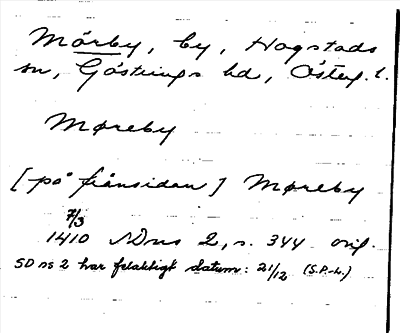 Mörby, by, Hogstads
sn, Göstrings hd, Österg. l.
Møreby
[på frånsidan] Møreby
7/3
1410 SDns 2, s. 344 orig.
SD ns 2 har felaktigt datum: 21/12 (S.P.-L.)